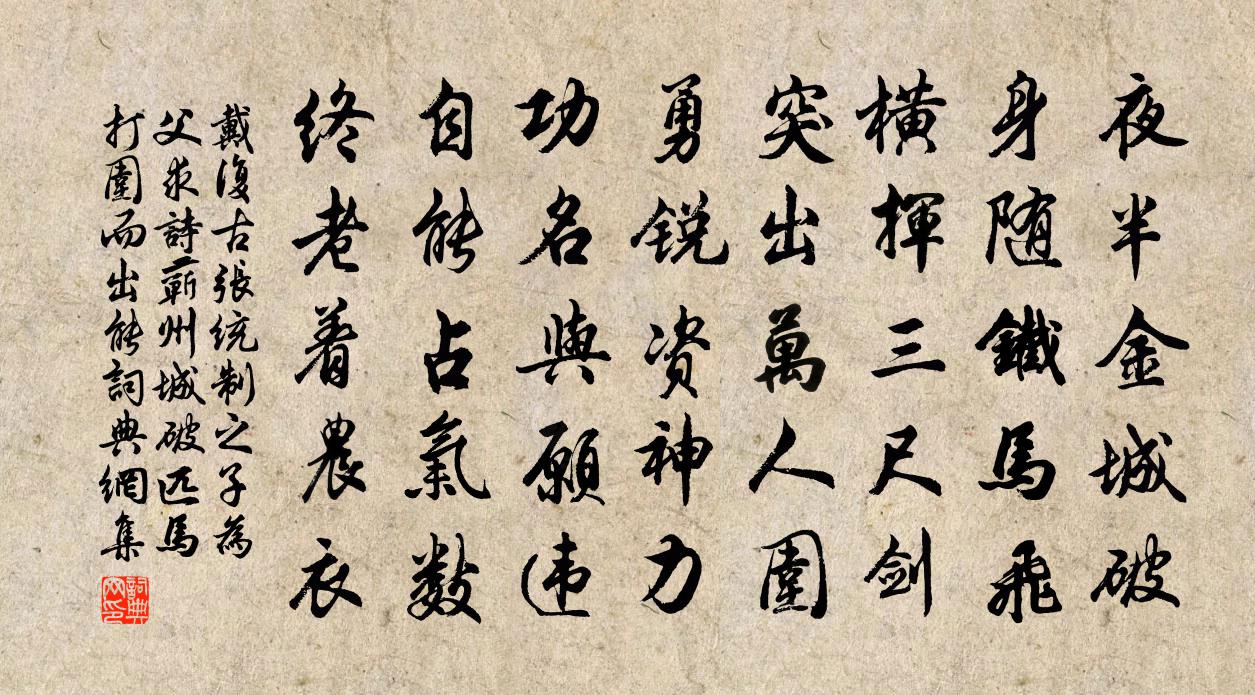 夜半金城破
身随鐵馬飛
橫揮三尺劍
突出萬人圍
勇銳資神力
功名與願違
自能占氣數
終老着農衣
戴復古張統制之子為
父求詩蘄州城破匹馬
打圍而出能詞典網集
詞典
網印